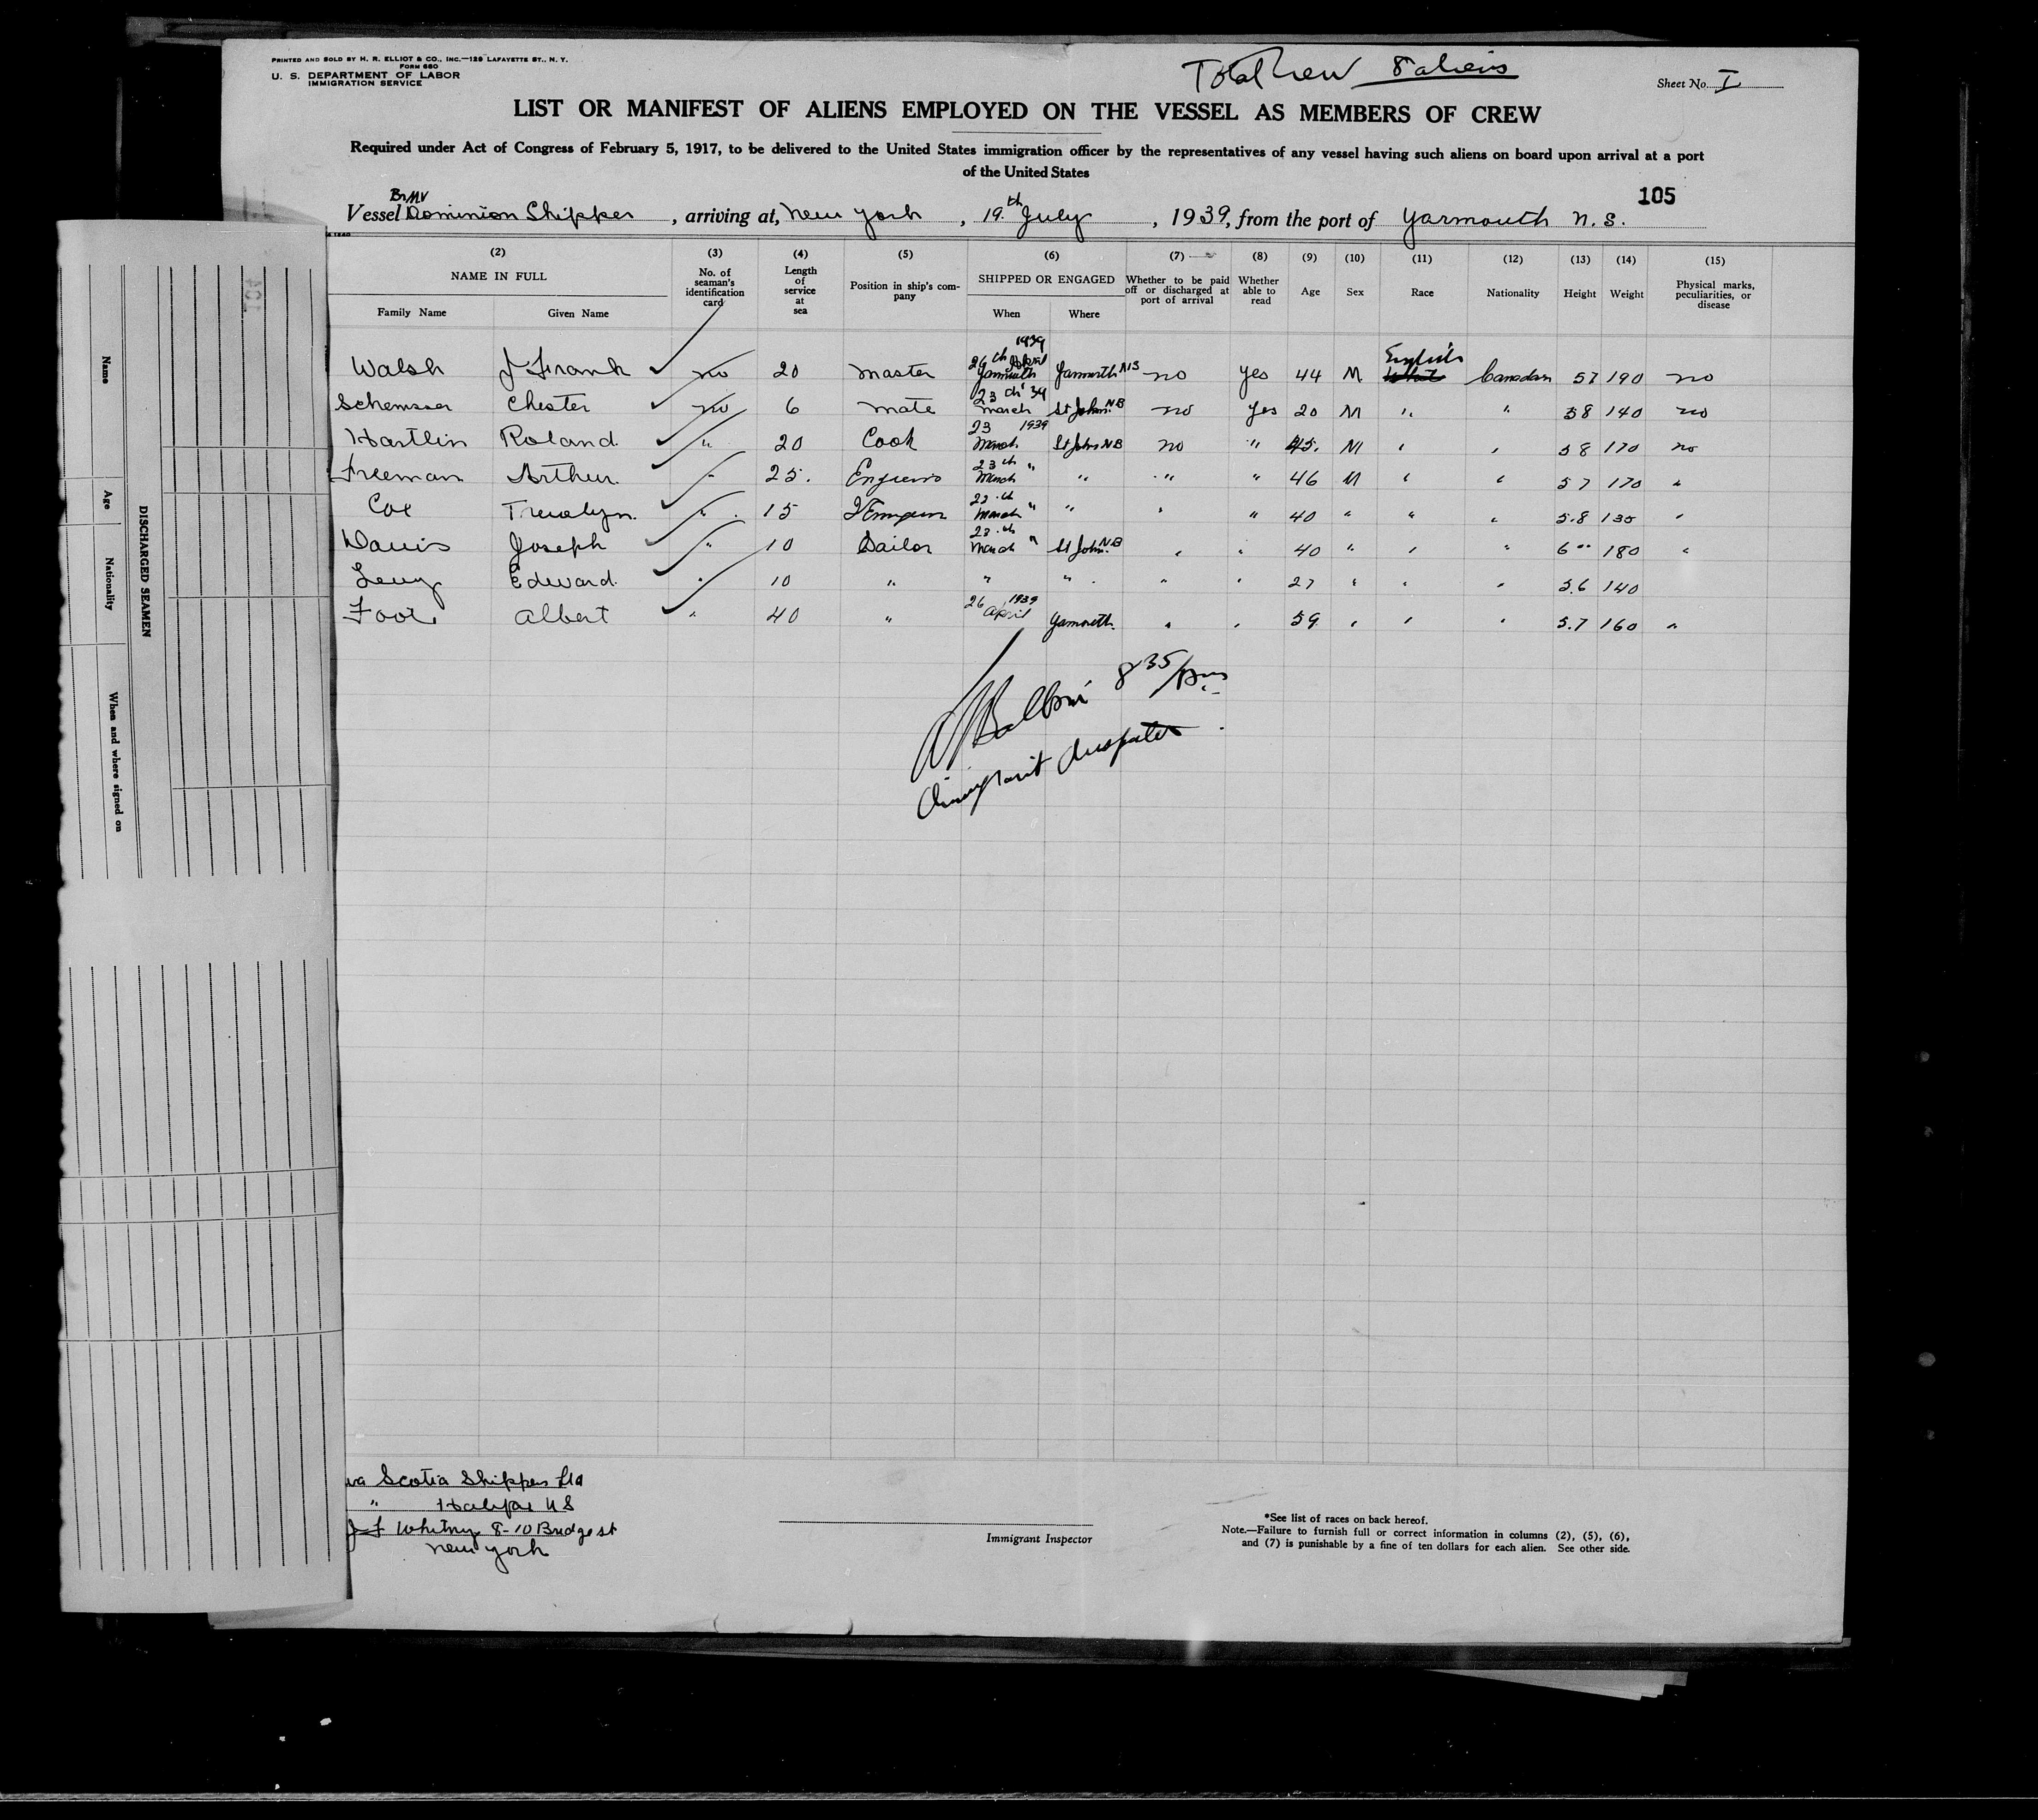 PRINTED AND SOLD BY H. R. ELLIOT & CO., INC.—129 LAFAYETTE ST., N. Y.
FORM 680
U. S. DEPARTMENT OF LABOR
IMMIGRATION SERVICE
Total Crew 8 aliens
Sheet No. I
LIST OR MANIFEST OF ALIENS EMPLOYED ON THE VESSEL AS MEMBERS OF CREW
Required under Act of Congress of February 5, 1917, to be delivered to the United States immigration officer by the representatives of any vessel having such aliens on board upon arrival at a port
of the United States
105
Br MV
Vessel Dominion Shipper, arriving at, New york, 19th July, 1939, from the port of Yarmouth N. S.
(2) (3) (4) (5) (6) (7) (8) (9) (10) (11) (12) (13) (14) (15)
NAME IN FULL
Family Name Given Name
No. of seaman's identification card
Length of service at sea
Position in ship's company
SHIPPED OR ENGAGED
When Where
Whether to be paid off or discharged at port of arrival
Whether able to read
Age Sex Race Nationality Height Weight
Physical marks, peculiarities, or disease
Walsh J Frank no 20 Master 26th April 1939 Yarmouth Yarmouth NS no yes 44 M English Canadian 57 190 no
Chester no 6 mate 23 39 march St John NB no yes 20 M " " 58 140 no
Hartlin Roland " 20 Cook 23 1939 March St John NB no " 45 M " " 58 170 no
Freeman Arthur " 25. 23th " March " " " 46 M " " 57 170 "
Coe " 15 23th March " " " " 40 " " " 5.8 135 "
Davis Joseph " 10 Sailor 23th March " St John NB " " 40 " " " 6 " 180 "
Edward " 10 " " " " " 27 " " " 5.6 140
Foote Albert " 40 " 26 1939 april Yarmouth " " 59 " " " 5.7 160 "
8 35/
Name
Age
Nationality
When and where signed on
DISCHARGED SEAMEN
va Scotia Shippers Ltd
" Halifax NS
J F Whitney 8-10 Bridge st
New york
Immigrant Inspector
*See list of races on back hereof.
Note.—Failure to furnish full or correct information in columns (2), (5), (6),
and (7) is punishable by a fine of ten dollars for each alien. See other side.